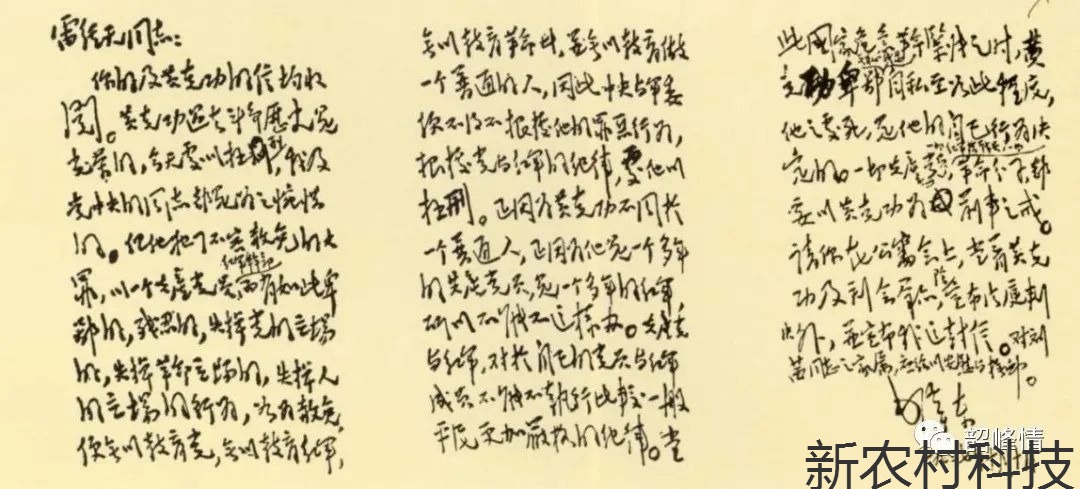 雷经天同志：
你的及黄克功的信均收
阅。黄克功过去斗争历史是
光荣的，今天处以极刑，我及
党中央的同志都是为之惋惜
的。但他犯了不容赦免的大
罪，以一个共产党员红军干部而有如此卑
鄙的，残忍的，失掉党的立场
的，失掉革命立场的，失掉人
的立场的行为，如为赦免，
便无以教育党，无以教育红军，
无以教育革命者，并无以教育做
一个普通的人，因此中央与军委
便不得不根据他的罪恶行为，
根据党与红军的纪律，处他以
极刑。正因为黄克功不同于
一个普通人，正因为他是一个多年
的共产党员，是一个多年的红军，
所以不能不这样办。共产党
与红军，对于自己的党员与红军
成员不能不执行比较一般
平民更加严格的纪律。当
此国家危急革命紧张之时，黄
克功卑鄙无耻残忍自私至如此程度，
他之处死，是他的自己行为决
定的。一切共产党员，一切红军指战员，一切革命分子，都
要以黄克功为前车之戒。
请你在公审会上，当着黄克
功及到会群众，除宣布法庭判
决外，并宣布我这封信。对刘
茜同志之家属，应给以安慰与抚恤。
毛泽东
韶峰情
新农村科技